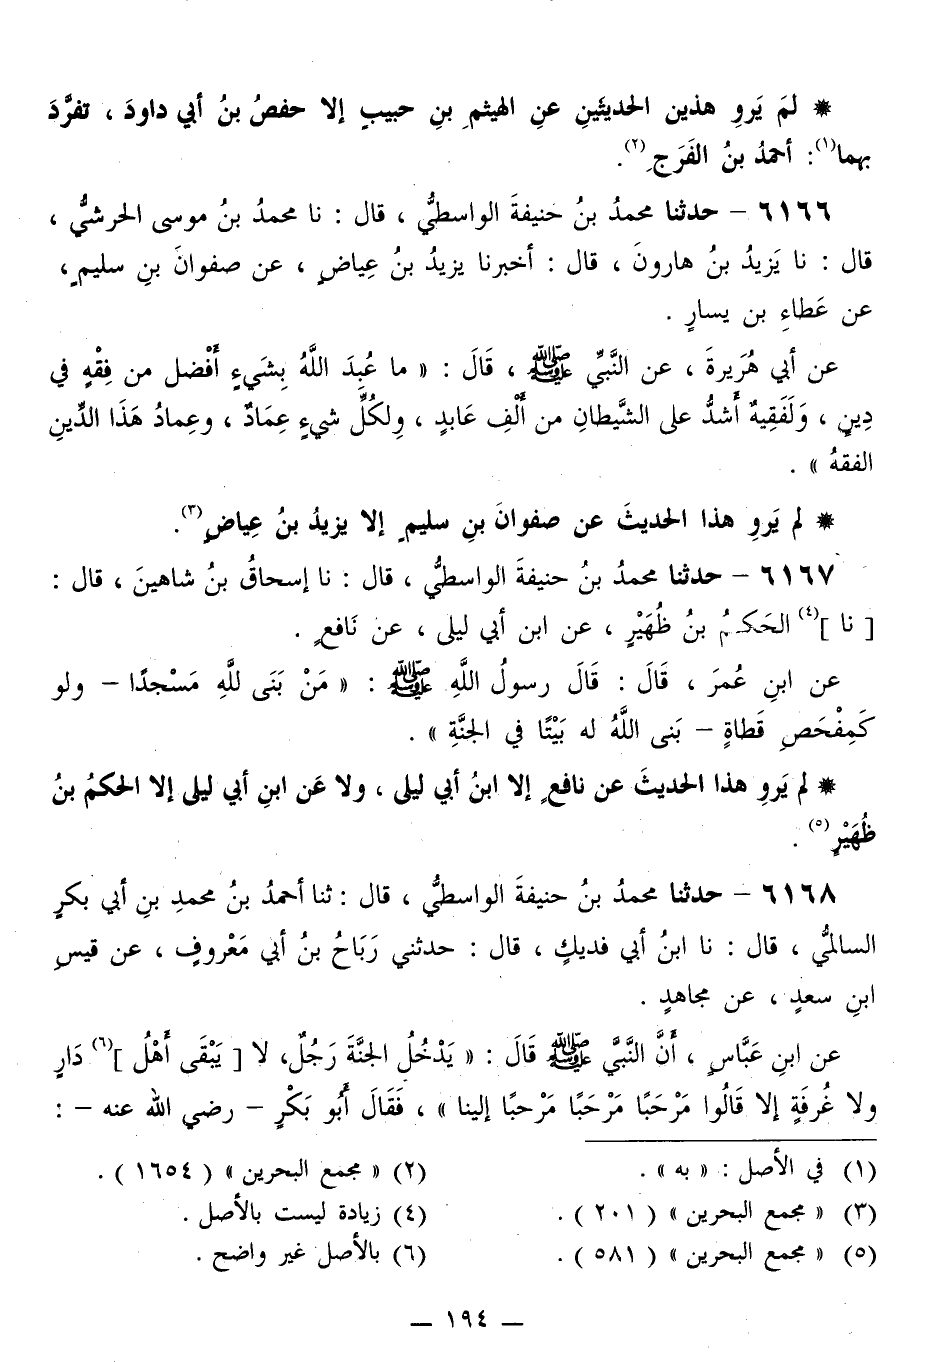 * لمَ يَروِ هذين الحديثَينِ عنِ الهيثمِ بنِ حبيبٍ إلا حفصُ بنُ أبي داودَ ، تفرَّدَ
بهما(١): أحمدُ بنُ الفَرَجِ(٢).
٦١٦٦ – حدثنا محمدُ بنُ حنيفةَ الواسطيُّ ، قال : نا محمدُ بنُ موسى الحرشيُّ ،
قال : نا يَزيدُ بنُ هارونَ ، قال : أخبرنا يزيدُ بنُ عِياضٍ ، عن صفوانَ بنِ سليمٍ ،
عن عَطاءِ بن يسارٍ .
عن أبي هُرَيرةَ ، عن النَّبيِّ ﷺ ، قَالَ : « ما عُبِدَ اللَّهُ بِشَيءٍ أَفْضل من فِقْهٍ في
دِينٍ ، وَلَفَقِيهٌ أَشدُّ على الشَّيطانِ من أَلْفِ عَابدٍ ، ولِكُلِّ شيءٍ عِمَادٌ ، وعِمادُ هَذَا الدِّينِ
الفقهُ » .
* لم يَروِ هذا الحديثَ عن صفوانَ بنِ سليمٍ إلا يزيدُ بنُ عِياضٍ(٣).
٦١٦٧ – حدثنا محمدُ بنُ حنيفةَ الواسطيُّ ، قال : نا إسحاقُ بنُ شاهينَ ، قال :
[ نا ](٤) الحَكمُ بنُ ظُهَيْرٍ ، عن ابن أبي ليلى ، عن نَافعٍ .
عن ابنِ عُمرَ ، قَالَ : قَالَ رسولُ اللَّهِ ﷺ : « مَنْ بَنَى للَّهِ مَسْجدًا – ولو
كَمِفْحَصِ قَطاةٍ – بَنى اللَّهُ له بَيْتًا في الجنَّةِ » .
* لم يَروِ هذا الحديثَ عن نافعٍ إلا ابنُ أبي ليلى ، ولا عَن ابنِ أبي ليلى إلا الحكمُ بنُ
ظُهَيْرٍ(٥) .
٦١٦٨ – حدثنا محمدُ بنُ حنيفةَ الواسطيُّ ، قال : ثنا أحمدُ بنُ محمدِ بنِ أبي بكرٍ
السالميُّ ، قال : نا ابنُ أبي فديكٍ ، قال : حدثني رَبَاحُ بنُ أبي مَعْروفٍ ، عن قيسِ
ابنِ سعدٍ ، عن مجاهدٍ .
عن ابنِ عَبَّاسٍ ، أَنَّ النَّبيَّ ﷺ قَالَ : « يَدْخُلُ الجنَّةَ رَجُلٌ، لا [ يَبْقَى أَهْلُ ](٦) دَارٍ
ولا غُرفَةٍ إلا قَالُوا مَرْحَبًا مَرْحَبًا مَرْحبًا إلينا » ، فَقَالَ أَبُو بَكْرٍ – رضي الله عنه – :
(١) في الأصل : « به » .
(٢) « مجمع البحرين » ( ١٦٥٤ ) .
(٣) « مجمع البحرين » ( ٢٠١ ) .
(٤) زيادة ليست بالأصل .
(٥) « مجمع البحرين » ( ٥٨١ ) .
(٦) بالأصل غير واضح .
– ١٩٤ –